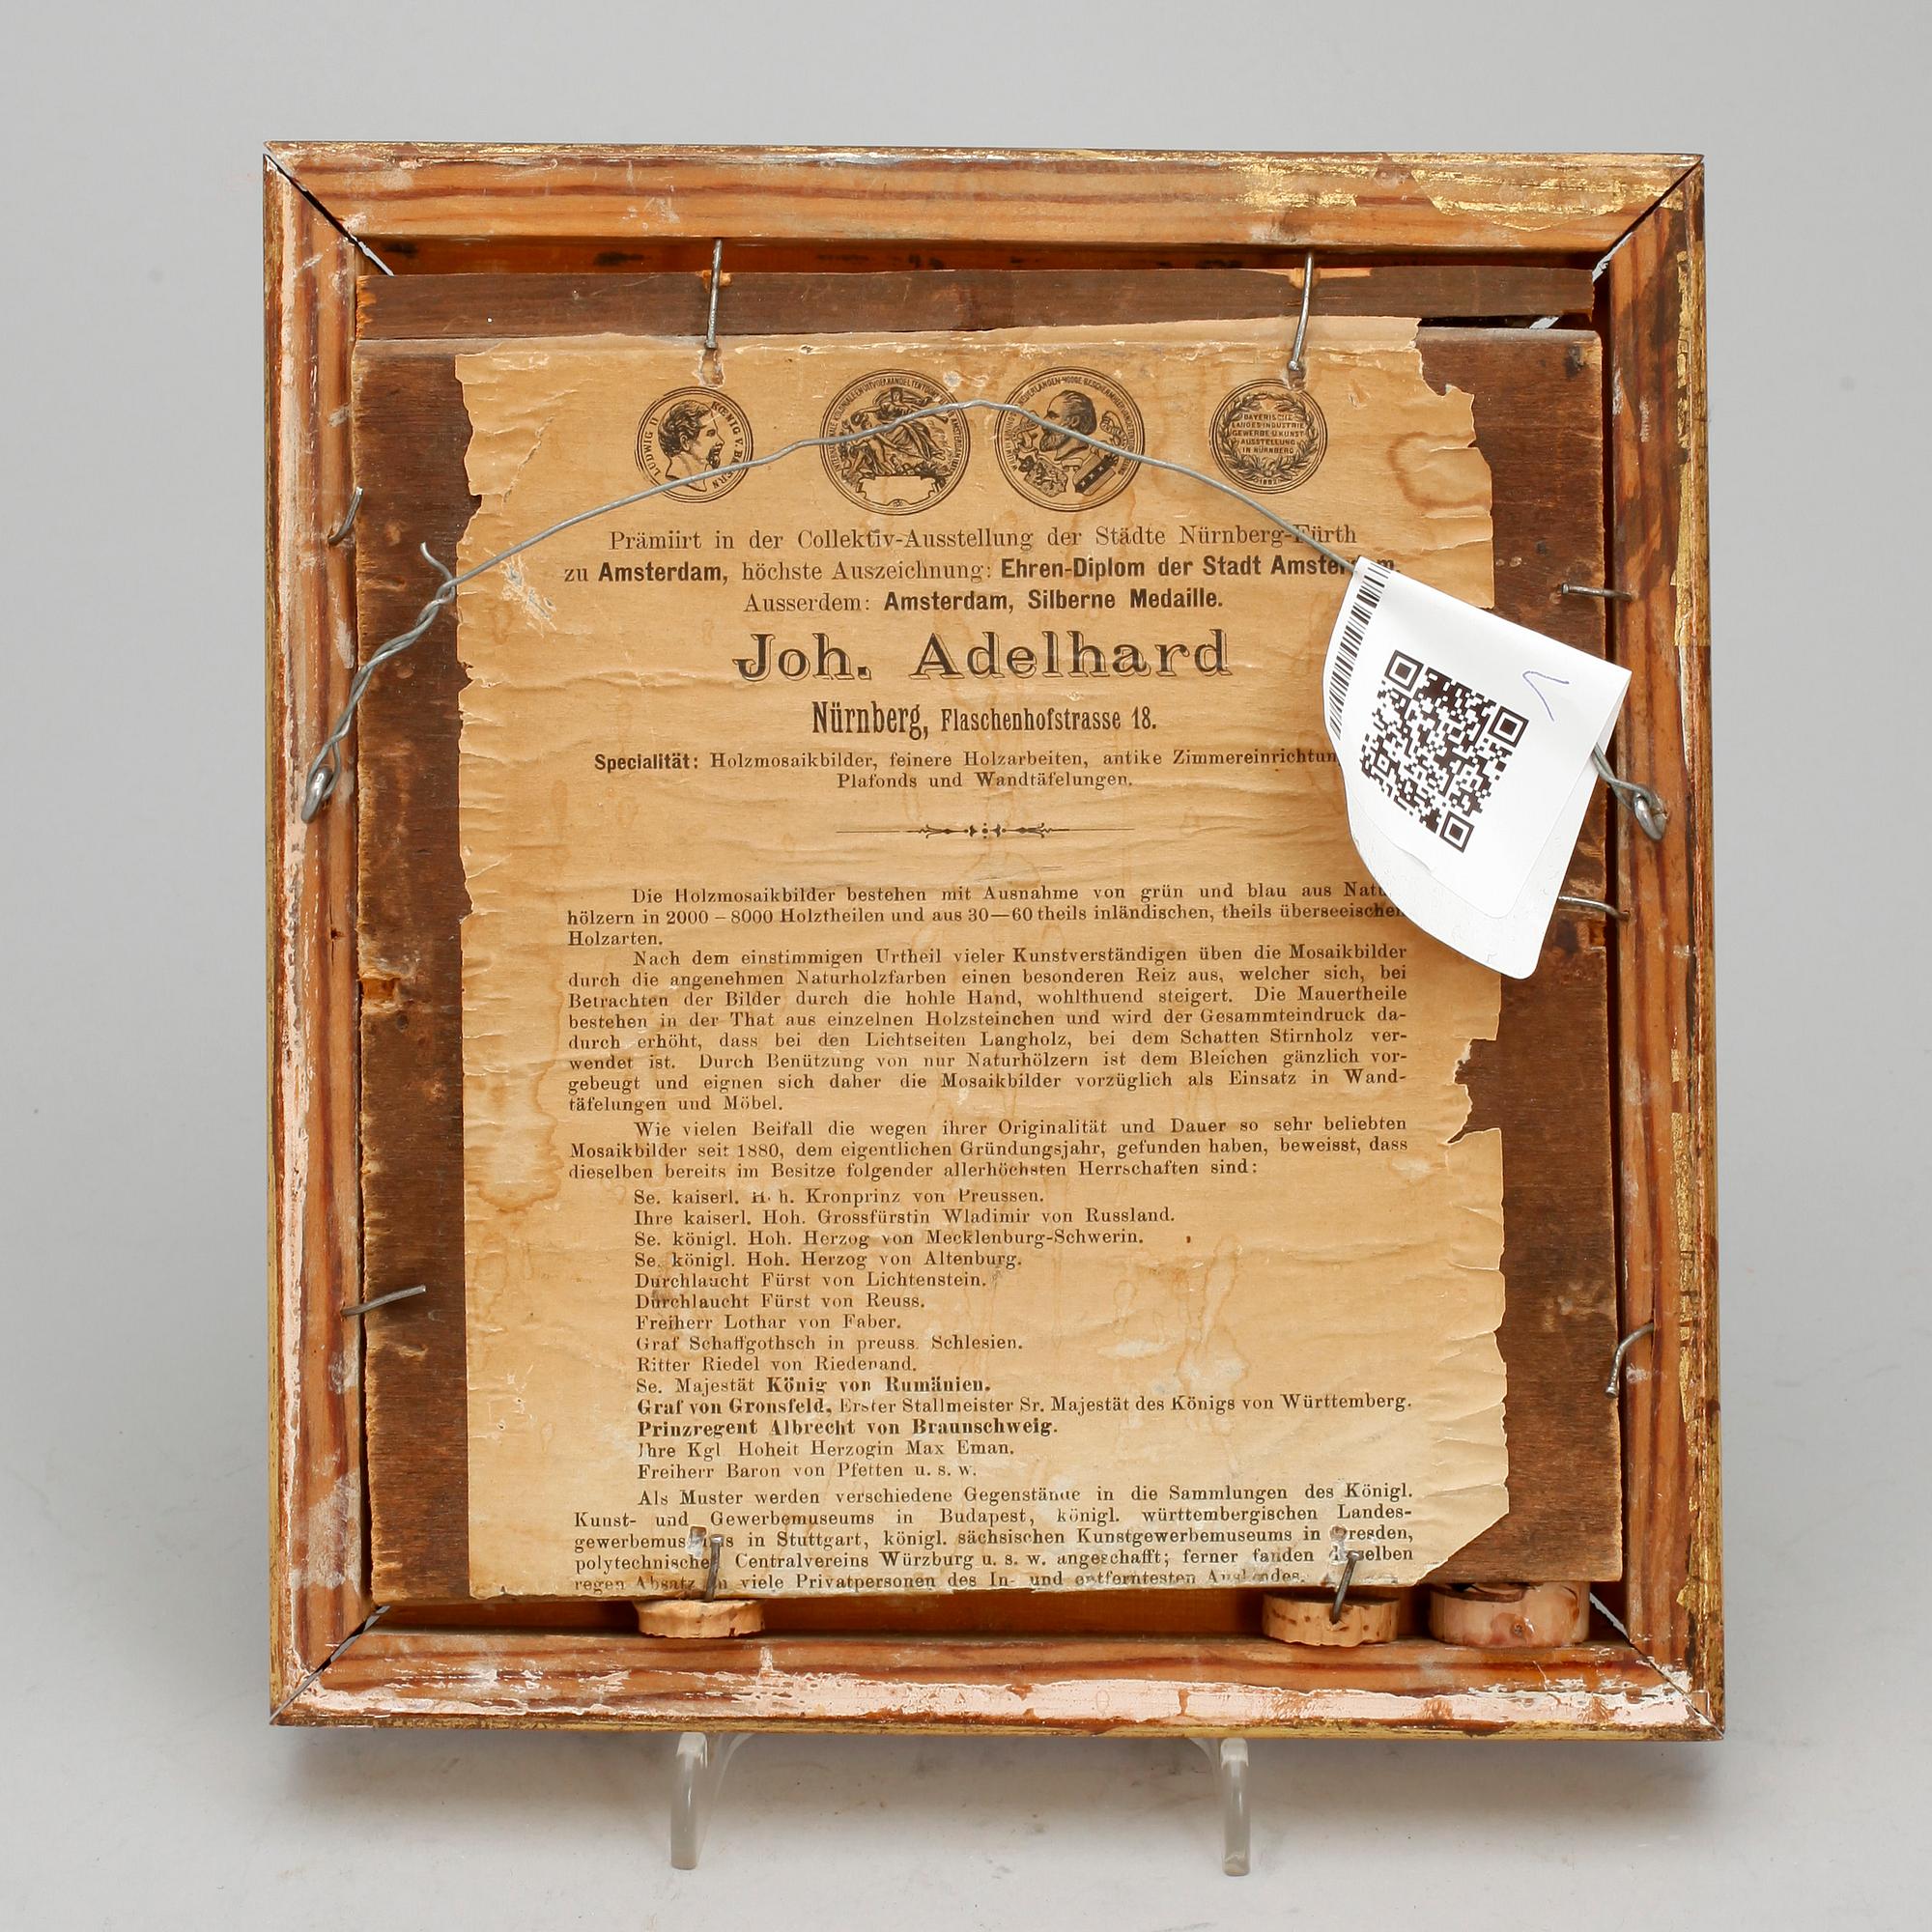 LUDWIG II KŒNIG V. BAYERN
BAYERISCHE
LANDES-INDUSTRIE
GEWERBE U. KUNST
AUSSTELLUNG
IN NÜRNBERG
1882
Prämiirt in der Collektiv-Ausstellung der Städte Nürnberg-Fürth
zu Amsterdam, höchste Auszeichnung: Ehren-Diplom der Stadt Amsterdam.
Ausserdem: Amsterdam, Silberne Medaille.
Joh. Adelhard
Nürnberg, Flaschenhofstrasse 18.
Specialität: Holzmosaikbilder, feinere Holzarbeiten, antike
Plafonds und Wandtäfelungen.
Die Holzmosaikbilder bestehen mit Ausnahme von grün und blau aus
hölzern in 2000 – 8000 Holztheilen und aus 30—60 theils inländischen, theils überseeischen
Holzarten.
Nach dem einstimmigen Urtheil vieler Kunstverständigen üben die Mosaikbilder
durch die angenehmen Naturholzfarben einen besonderen Reiz aus, welcher sich, bei
Betrachten der Bilder durch die hohle Hand, wohlthuend steigert. Die Mauertheile
bestehen in der That aus einzelnen Holzsteinchen und wird der Gesammteindruck da-
durch erhöht, dass bei den Lichtseiten Langholz, bei dem Schatten Stirnholz ver-
wendet ist. Durch Benützung von nur Naturhölzern ist dem Bleichen gänzlich vor-
gebeugt und eignen sich daher die Mosaikbilder vorzüglich als Einsatz in Wand-
täfelungen und Möbel.
Wie vielen Beifall die wegen ihrer Originalität und Dauer so sehr beliebten
Mosaikbilder seit 1880, dem eigentlichen Gründungsjahr, gefunden haben, beweisst, dass
dieselben bereits im Besitze folgender allerhöchsten Herrschaften sind:
Se. kaiserl. H. h. Kronprinz von Preussen.
Ihre kaiserl. Hoh. Grossfürstin Wladimir von Russland.
Se. königl. Hoh. Herzog von Mecklenburg-Schwerin.
Se. königl. Hoh. Herzog von Altenburg.
Durchlaucht Fürst von Lichtenstein.
Durchlaucht Fürst von Reuss.
Freiherr Lothar von Faber.
Graf Schaffgothsch in preuss. Schlesien.
Ritter Riedel von Riedenand.
Se. Majestät König von Rumänien.
Graf von Gronsfeld, Erster Stallmeister Sr. Majestät des Königs von Württemberg.
Prinzregent Albrecht von Braunschweig.
Ihre Kgl Hoheit Herzogin Max Eman.
Freiherr Baron von Pfetten u. s. w.
Als Muster werden verschiedene Gegenstände in die Sammlungen des Königl.
Kunst- und Gewerbemuseums in Budapest, königl. württembergischen Landes-
gewerbemuseums in Stuttgart, königl. sächsischen Kunstgewerbemuseums in Dresden,
polytechnischen Centralvereins Würzburg u. s. w. angeschafft; ferner fanden dieselben
regen Absatz in viele Privatpersonen des In- und entferntesten Auslandes.